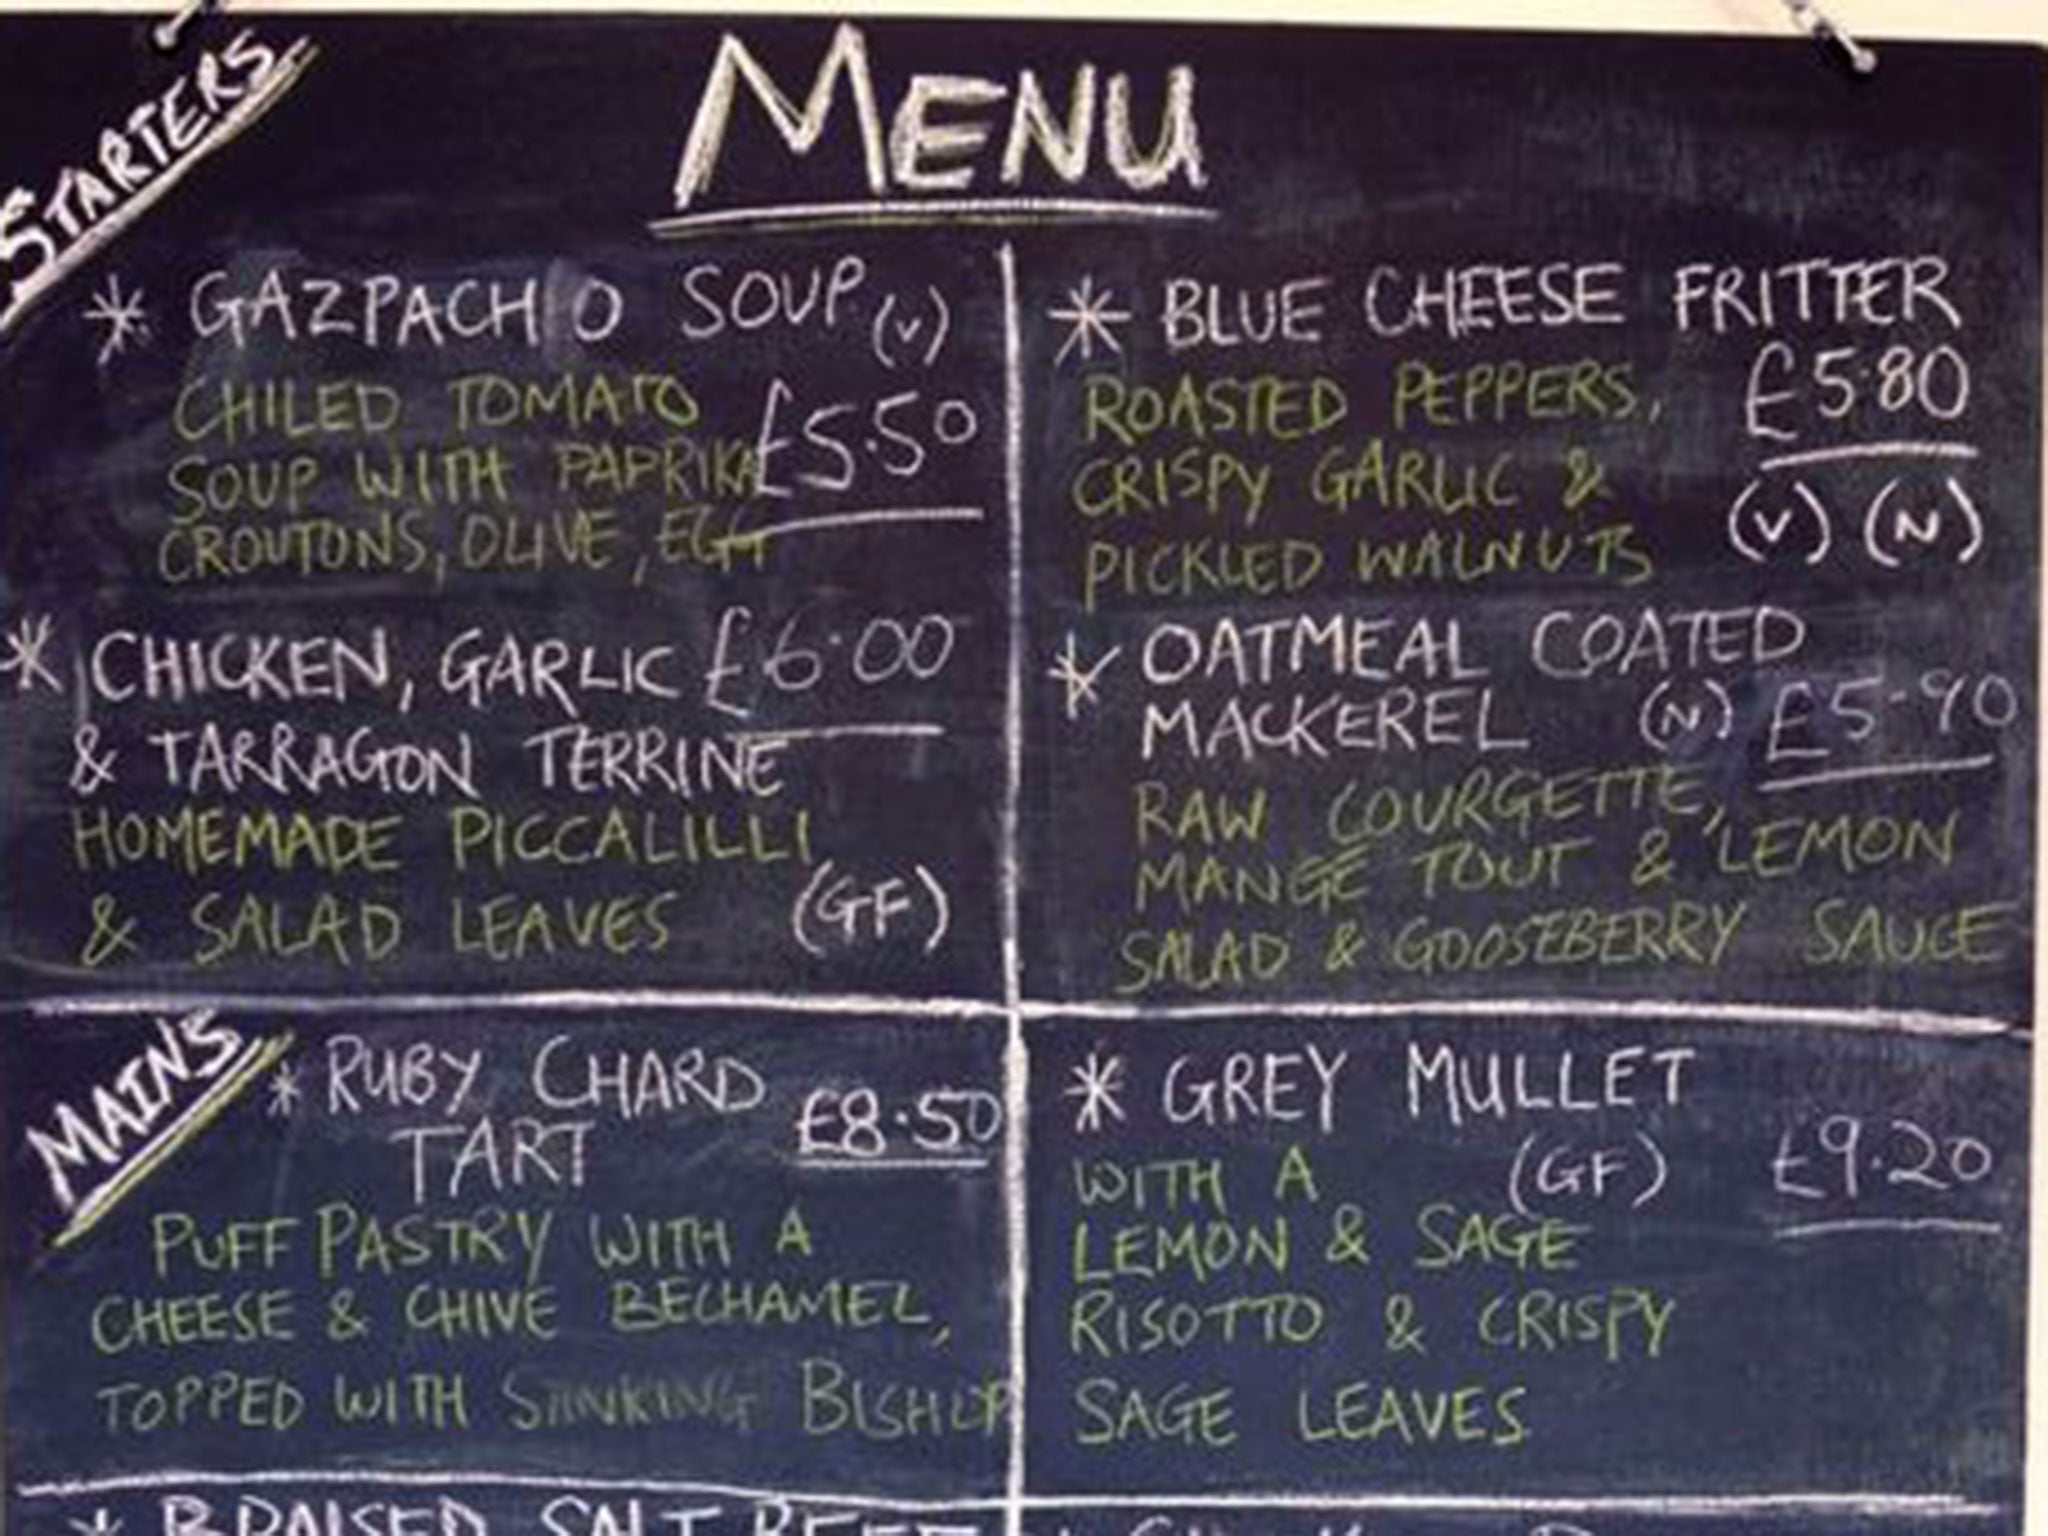 MENU
STARTERS
* GAZPACHO SOUP (V)
CHILED TOMATO £5.50
SOUP WITH PAPRIKA
CROUTONS, OLIVE, EGG
* CHICKEN, GARLIC £6.00
& TARRAGON TERRINE
HOMEMADE PICCALILLI
& SALAD LEAVES (GF)
* BLUE CHEESE FRITTER
ROASTED PEPPERS, £5.80
CRISPY GARLIC &
PICKLED WALNUTS (V) (N)
* OATMEAL COATED
MACKEREL (N) £5.90
RAW COURGETTE,
MANGE TOUT & LEMON
SALAD & GOOSEBERRY SAUCE
MAINS
* RUBY CHARD
TART £8.50
PUFF PASTRY WITH A
CHEESE & CHIVE BECHAMEL,
TOPPED WITH STINKING BISHOP
* GREY MULLET
WITH A (GF) £9.20
LEMON & SAGE
RISOTTO & CRISPY
SAGE LEAVES
* BRAISED SALT BEEF